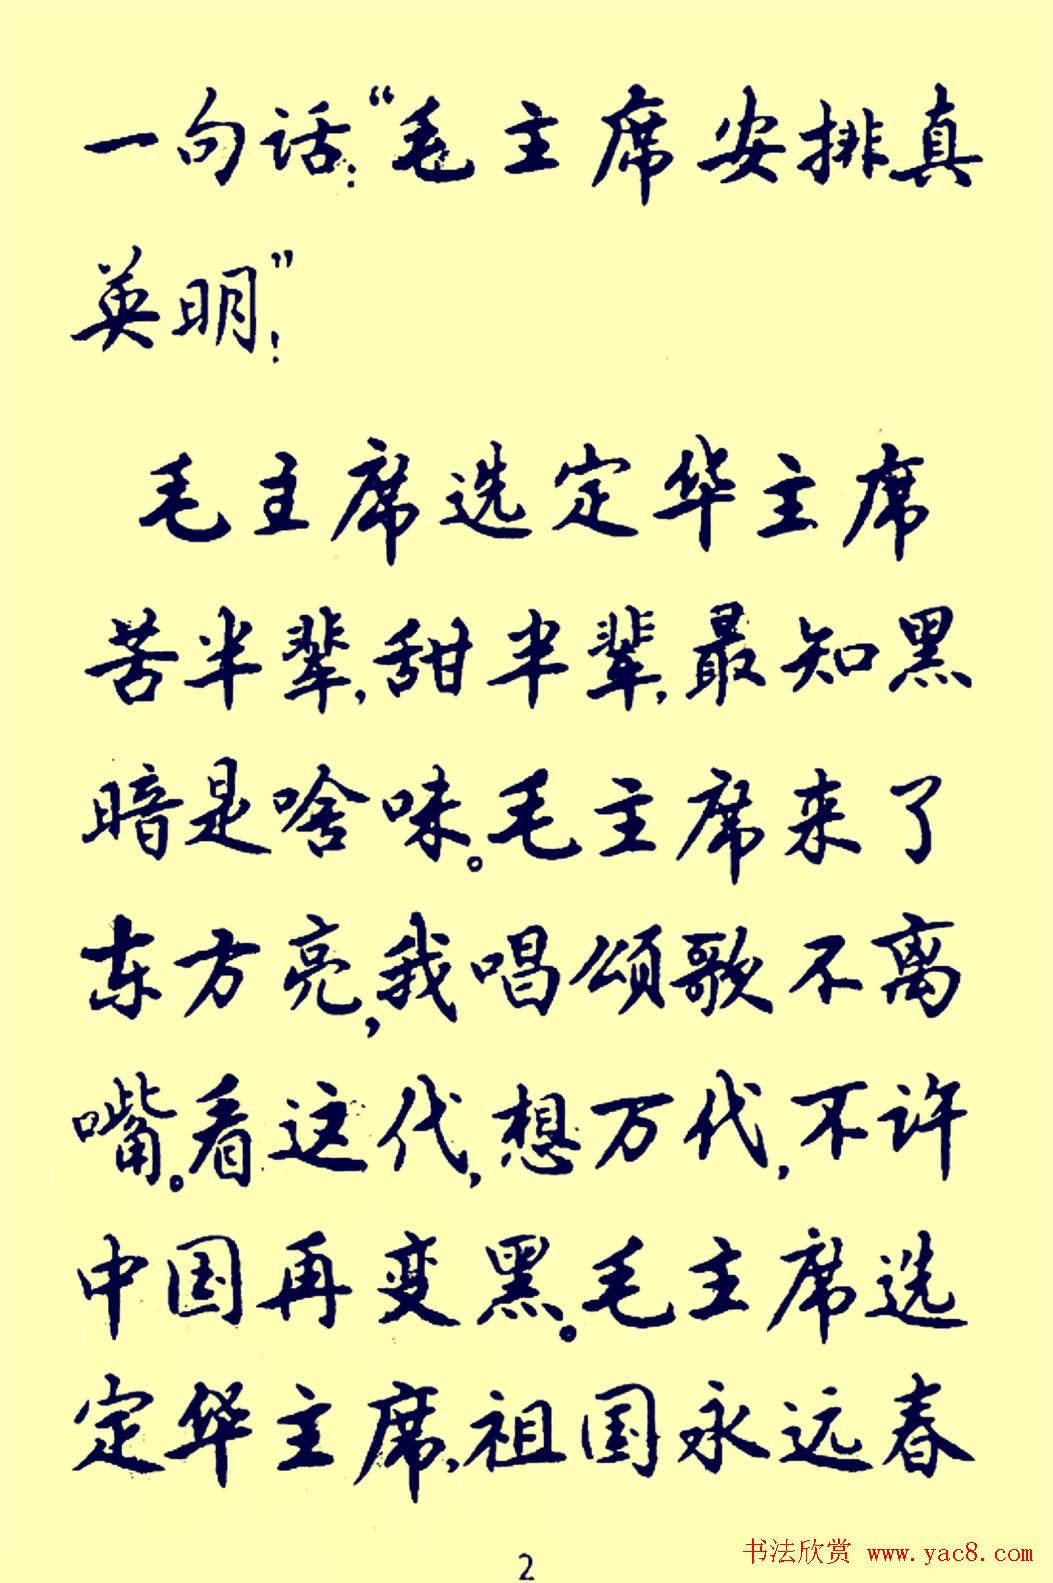 一句话:“毛主席安排真
英明”!
毛主席选定华主席
苦半辈,甜半辈,最知黑
暗是啥味。毛主席来了
东方亮,我唱颂歌不离
嘴。看这代,想万代,不许
中国再变黑。毛主席选
定华主席,祖国永远春
2
书法欣赏 www.yac8.com